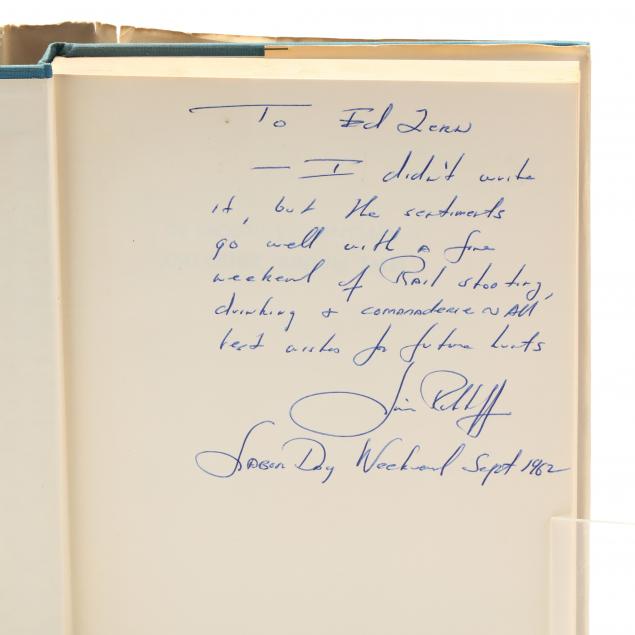 To Ed Zern
— I didn't write
it, but the sentiments
go well with a fine
weekend of Rail shooting,
drinking & comaraderie ~ All
best wishes for future hunts
Jim
Labor Day Weekend Sept 1962